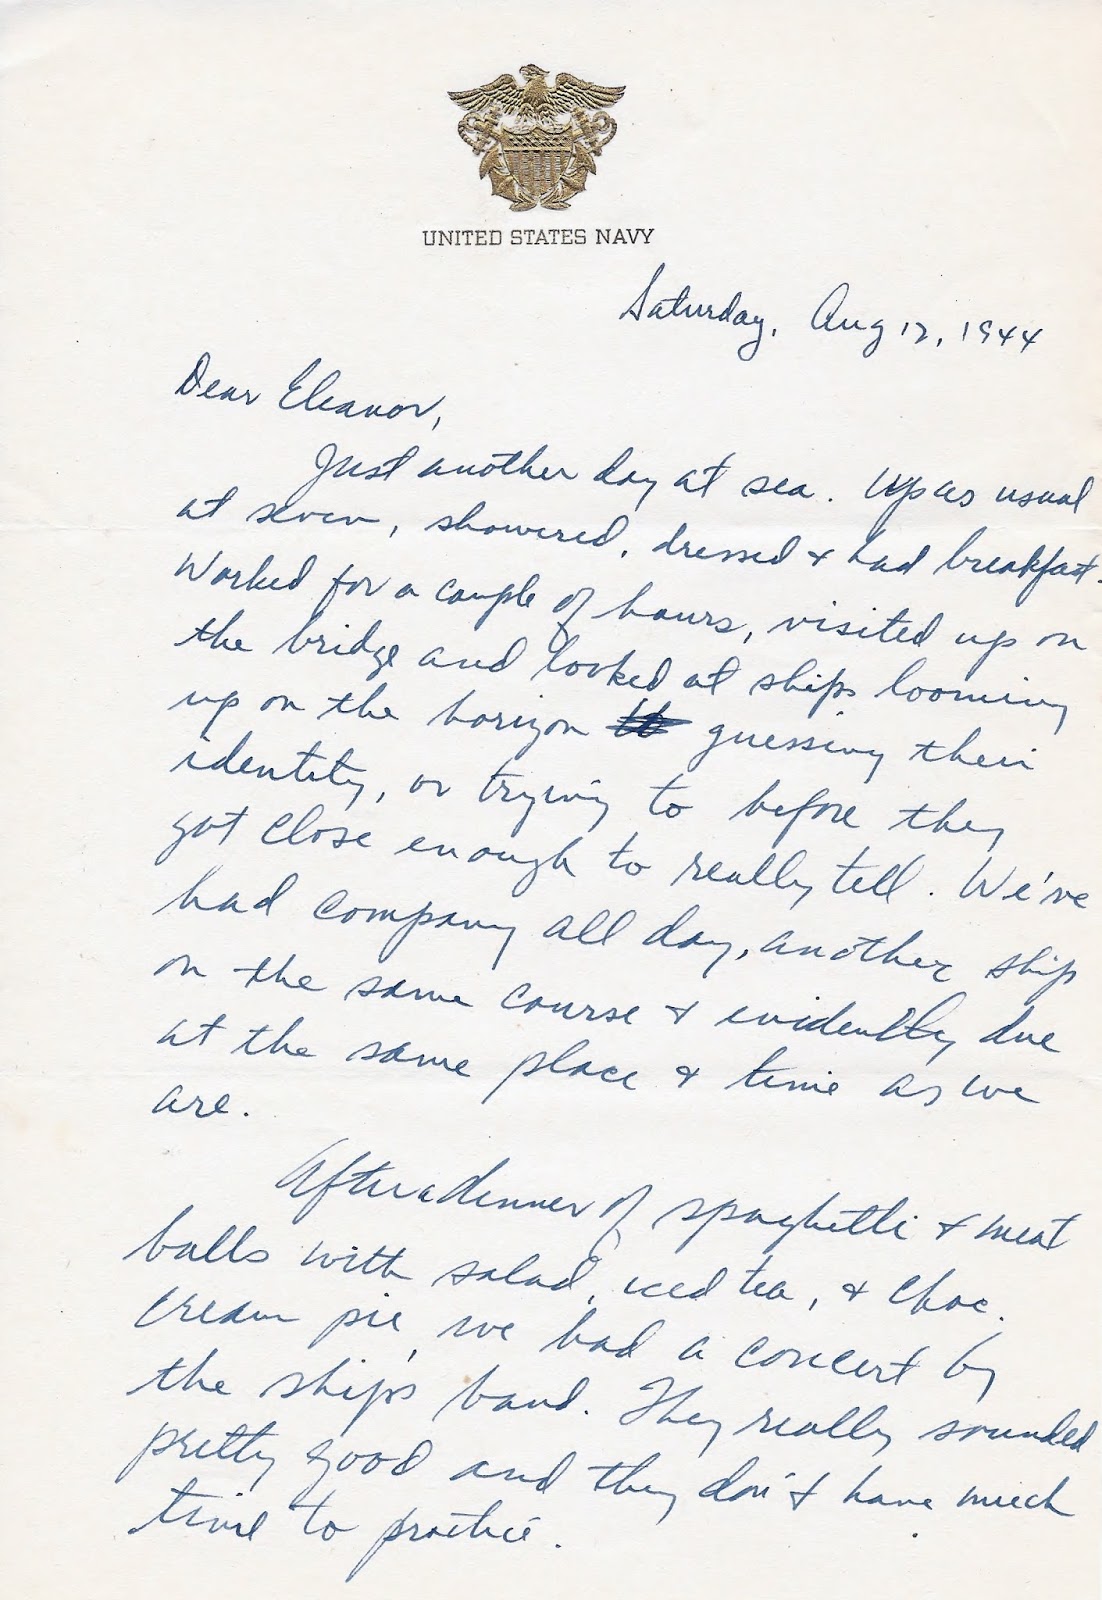 UNITED STATES NAVY
Saturday, Aug 12, 1944
Dear Eleanor,
Just another day at sea. Up as usual
at seven, showered, dressed & had breakfast.
Worked for a couple of hours, visited up on
the bridge and looked at ships looming
up on the horizon guessing their
identity, or trying to before they
got close enough to really tell. We've
had company all day, another ship
on the same course & evidently due
at the same place & time as we
are.
After a dinner of spaghetti & meat
balls with salad, iced tea, & choc.
cream pie, we had a concert by
the ship's band. They really sounded
pretty good and they don't have much
time to practice.